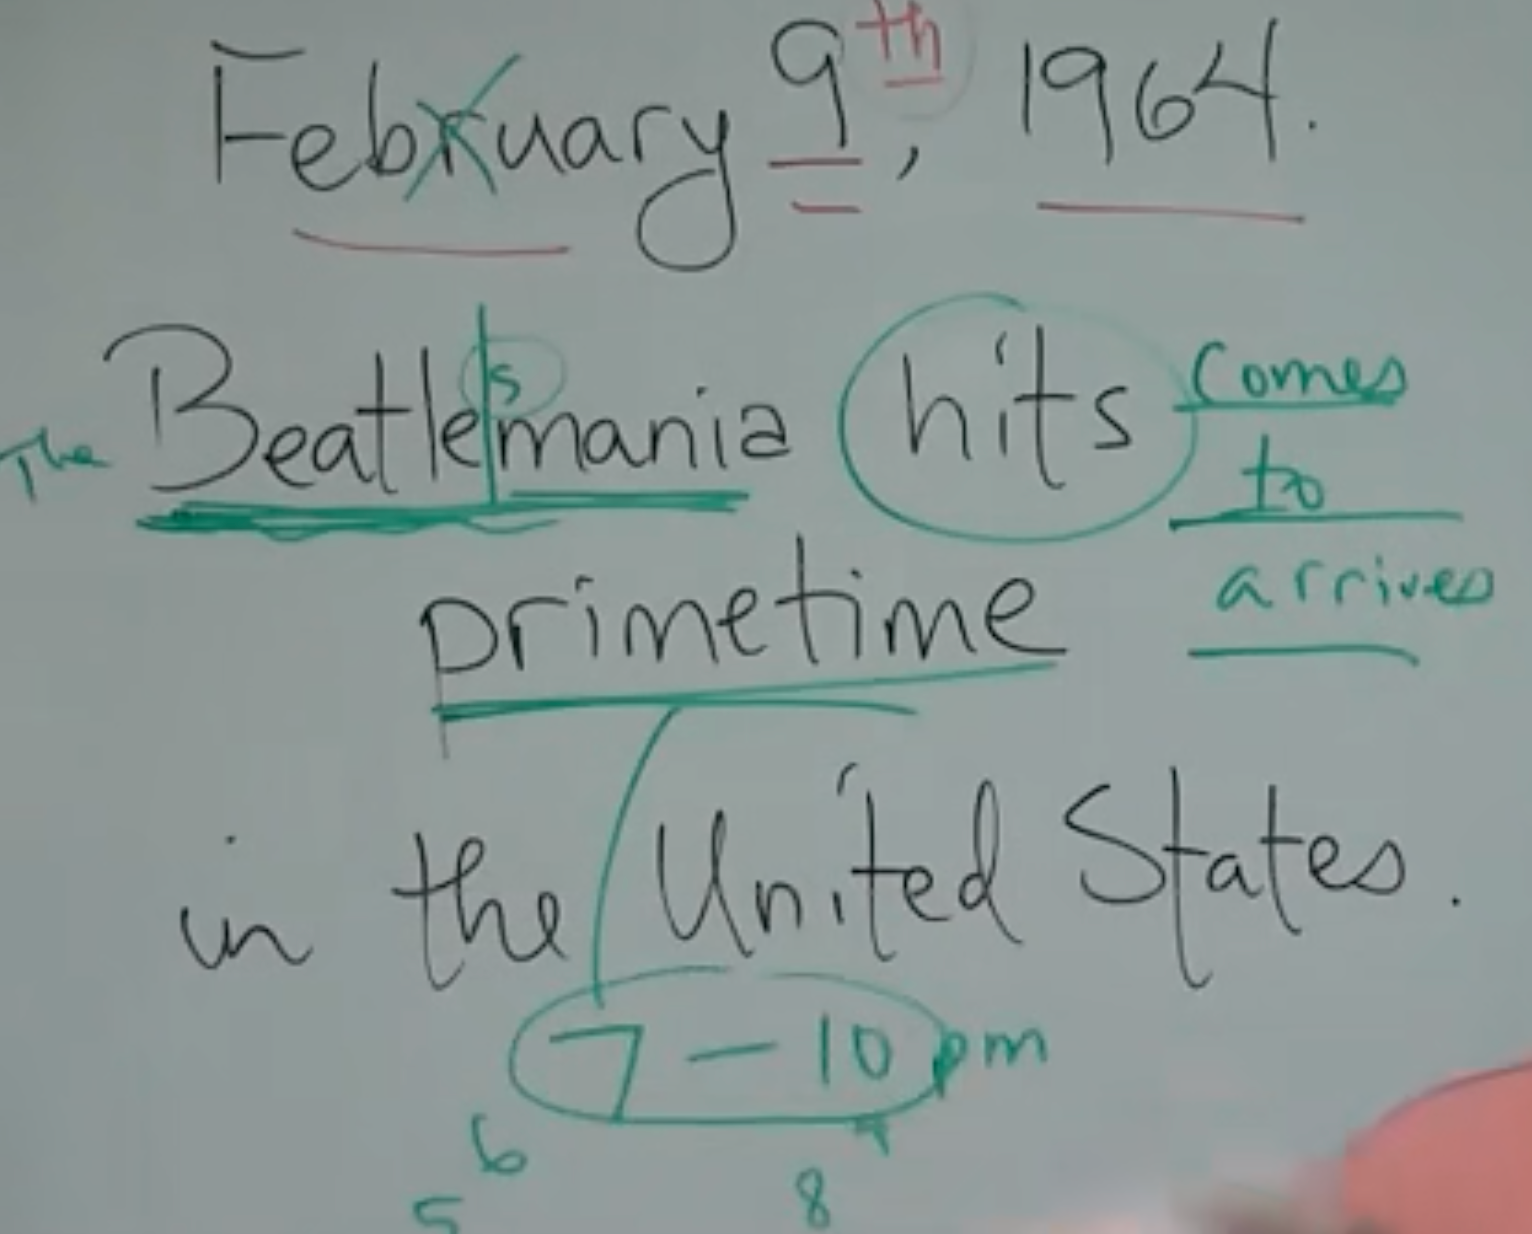 February 9th, 1964.
The Beatlesmania hits comes
to
arrives
primetime
in the United States.
7-10pm
6 9
5 8